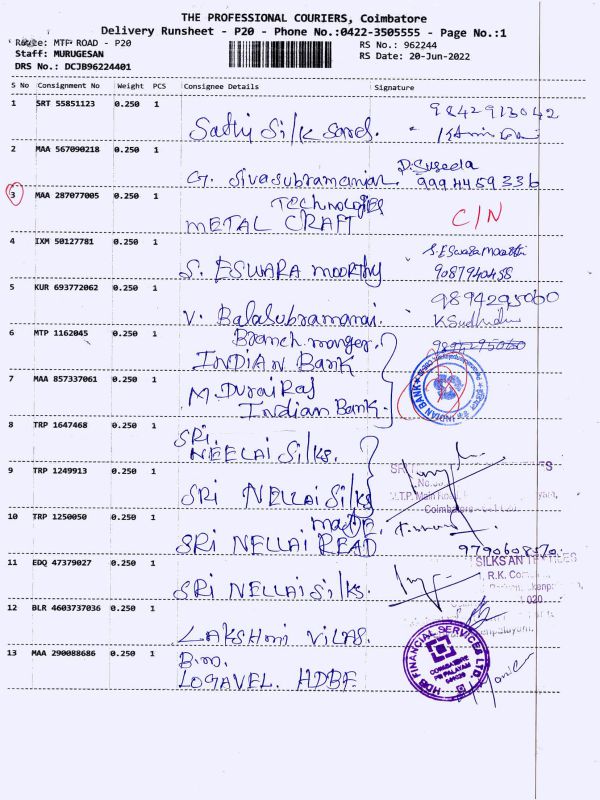 THE PROFESSIONAL COURIERS, Coimbatore
Delivery Runsheet - P20 - Phone No.:0422-3505555 - Page No.:1
Route: MTP ROAD - P20
RS No.: 962244
Staff: MURUGESAN
RS Date: 20-Jun-2022
DRS No.: DCJB96224401
S No Consignment No Weight PCS Consignee Details Signature
1 SRT 55851123 0.250 1 9842913042
Sathy Silk
2 MAA 567090218 0.250 1 P. Suseela
G. Sivasubramanian 9994459336
3 MAA 287077005 0.250 1 TECHNOLOGIES
METAL CRAFT C/N
4 IXM 50127781 0.250 1 S. ESwara Moorthi
S. ESWARA MOORTHY 9087940458
5 KUR 693772062 0.250 1 9894295060
V. Balasubramanai.
6 MTP 1162045 0.250 1 Branch manger. 9894295060
INDIAN BANK
7 MAA 857337061 0.250 1 M. DuraiRaj
Indian Bank.
INDIAN BANK
8 TRP 1647468 0.250 1 SRI.
NEELAI Silks.
9 TRP 1249913 0.250 1
SRI NELLAI Silks
M.T.P. Main Road,
Coimbatore
10 TRP 1250050 0.250 1
SRI NELLAI READ MADE
9790608570.
11 EDQ 47379027 0.250 1
SRI NELLAI Silks.
SILKS AN TEXTILES
R.K.
12 BLR 4603737036 0.250 1
LAKSHMI VILAS.
13 MAA 290088686 0.250 1 B.m.
LOGAVEL. HDBF.
HDB FINANCIAL SERVICES LTD.
COIMBATORE
PN PALAYAM
641020